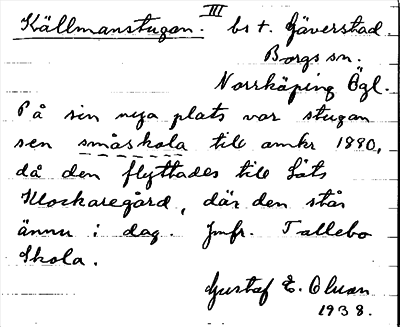 III
Källmanstugan. bst. Gäverstad.
Borgs sn.
Norrköping Ögl.
På sin nya plats var stugan
sen småskola till omkr 1890,
då den flyttades till Låts
Klockaregård, där den står
ännu i dag. Jmfr. Tallebo
Skola.
Gustaf E. Olson
1938.